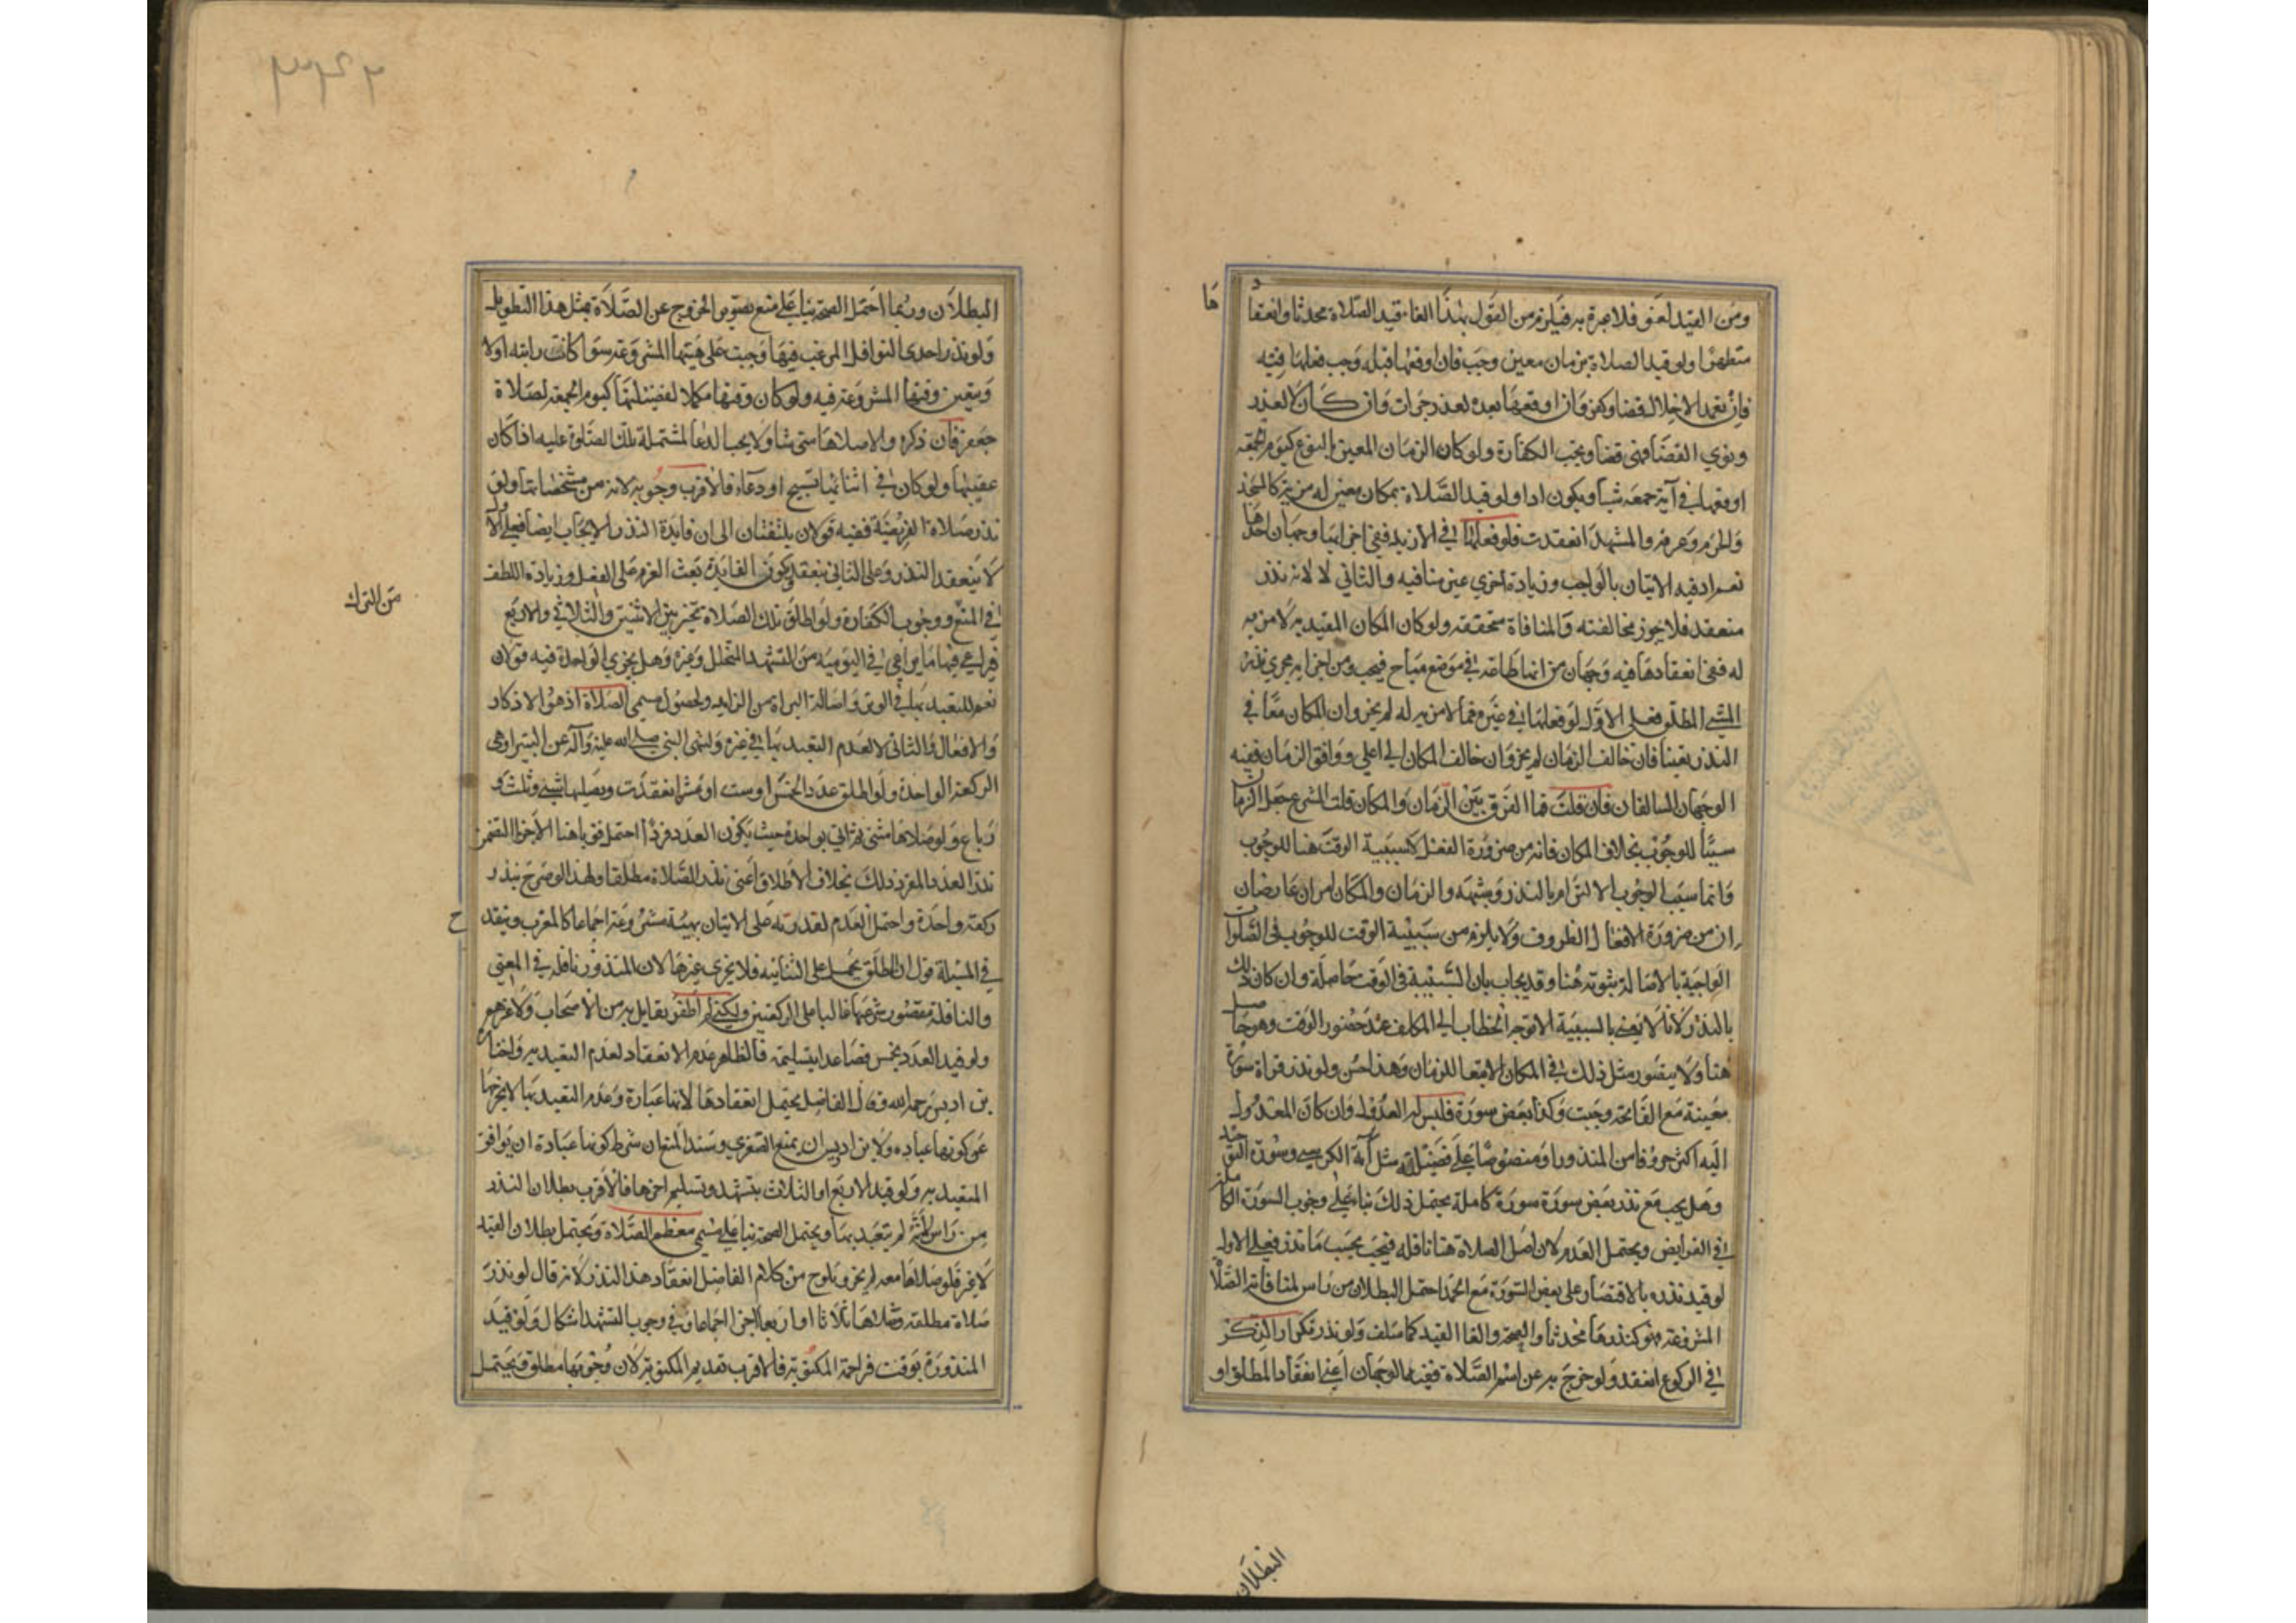 ومن القيد لغو فلا عبرة به فيلزم من القول بهذا الغاء قيد الصلاة محدثا وانعقادها
متطهرا ولو قيد الصلاة بزمان معين وجب فان اوقعها قبله وجب فعلها فيه
فان تعمد الاخلال قضا وكفر وان اوقعها بعده لعذر جرات وان كان لا لعذر
ونوي القضا فهي قضا ويجب الكفارة ولو كان الزمان المعين بالنوع كيوم الجمعة
اوقعها في آية جمعه شا ويكون ادا ولو قيد الصلاة بمكان معين له مزية كالمسجد
والحرم وعرفة والمشهد انعقدت فلو فعلها في الازيد ففي اجزائها وجهان احدهما
نعم اد فيه الاتيان بالواجب وزيادة اخري غير منافيه والثاني لا لانه نذر
منعقد فلا يجوز مخالفته والمنافاة متحققه ولو كان المكان المقيد به لا مزيه
له ففي انعقادها فيه وجهان من انها طاعه في موضع مباح فيجب ومن اجزايه مجري نذر
المشي المطلق فعلى الاول لو فعلها في غيره مما لا مزيه له لم يجز وان المكان معا في
النذر تعينا فان خالف الزمان لم يجز وان خالف المكان الى اعلي ووافق الزمان ففيه
الوجهان السالفان فان قلت فما الفرق بين الزمان والمكان قلت الشرع جعل الزمان
سببا للوجوب بخلاف المكان فانه من ضرورة الفعل كسببية الوقت هنا للوجوب
وانما سبب الوجوب الالتزام بالنذر وشبهه والزمان والمكان امران عارضان
ان من ضرورة الافعال الظروف ولا يلزم من سببية الوقت للوجوب في الصلوات
الواجبة بالاصالة ثبوته هنا وقد يجاب بان السببية في الوقت حاصلة وان كان ذلك
بالنذر ولانا لا يعني بالسببية الا توجه الخطاب الى المكلف عند حضور الوقت وهو حاصل
هنا ولا يتصور مثل ذلك في المكان الا تبعا للزمان وهذا حسن ولو نذر قراة سورة
معينة مع الفاتحه وجبت وكذا بعض سورة فليس له العدول وان كان المعدول
اليه اكثر حروفا من المنذور او منصوصا على فضيلته مثل آية الكرسي وسورة التوحيد
وهل يجب مع نذر بعض سورة سورة كاملة يحتمل ذلك بناء على وجوب السورة الكاملة
في الفرايض ويحتمل العدم لان اصل الصلاة هنا نافله فيجب بحسب ما نذر فعلى الاول
لو قيد نذره بالاقتصار على بعض السورة مع الحمد احتمل البطلان من راس لمنافاته الصلاة
المشروعة فهو كنذرها محدثا والصحة والغا القيد كما سلف ولو نذر تكرار الذكر
في الركوع انعقد ولو خرج به عن اسم الصلاة ففيه الوجهان اعني انعقاد المطلق او
البطلان
البطلان وربما احتمل الصحة بناء على منع تصور الخروج عن الصلاة بمثل هذا التطويل
ولو نذر احدى النوافل المرغب فيها وجبت على هيئتها المشروعة سوا كانت راتبه او لا
ويتعين وقتها المشروعة فيه ولو كان وقتها مكملا لفضيلتها كيوم الجمعة لصلاة
جعفر فان ذكره والا صلاها متى شا ولا يجب الدعا المشتملة تلك الصلوة عليه اذا كان
عقيبها ولو كان في اثنائها تسبيح او دعاء فالاقرب وجوبه لانه من مشخصاتها ولو
نذر صلاة الفريضة ففيه قولان يلتفتان الى ان فايدة النذر الايجاب ايضا فعلى الاول
لا ينعقد النذر وعلى الثاني ينعقد ويكون الفايدة تبعث العزم على الفعل وزيادة اللطف
في المنع ووجوب الكفارة ولو اطلق تلك الصلاة تخير بين الاثنتين والثلاث والاربع
من الترك
فيراعي فيها ما يراعي في اليومية من التشهد المتخلل وغيره وهل يجزي الواحدة فيه قولان
نعم للتعبد بها في الوتر واصالة البراة من الزايد ولحصول مسمي الصلاة اذ هو الاذكار
والافعال والثاني لا لعدم التعبد بها في غيره ولنهي النبي صلى الله عليه وآله عن البتيرا وهي
الركعة الواحدة ولو اطلق عدد الخمس او ست او عشر انعقدت ويصليها مثنى وثلث و
رباع ولو صلاها مثنى ثم اتي بواحدة حيث يكون العدد فردا احتمل قويا هنا الاجزا لتضمن
نذر العدد المفرد ذلك بخلاف الاطلاق اعني نذر الصلاة مطلقا ولهذا لو صرح بنذر
ركعة واحدة واحتمل العدم لقدرته على الاتيان بهيئة مشروعة اجماعا كالمغرب وينقدح
في المسئلة قول ان المطلق يحمل على الثنائيه فلا يجزي غيرها لان المنذور نافله في المعني
والنافلة مقصور شرعيتها غالبا على الركعتين ولكني لم اظفر بقايل به من الاصحاب ولا غيرهم
ولو قيد العدد بخمس فصاعدا بتسليمة فالظاهر عدم الانعقاد لعدم التعبد به واختاره
بن ادريس رحمه الله وقال الفاضل يحتمل انعقادها لانها عبارة وعدم التعبد بها لا يخرجها
عن كونها عباده ولابن ادريس ان يمنع الصغري وسند المنع ان شرط كونها عبادة ان يوافق
المتعبد به ولو قيد الاربع او الثلاث بتشهد وتسليم اخرها فالاقرب بطلان النذر
من راس لانه لم يتعبد بها ويحتمل الصحة بناء على مسمي معظم الصلاة ويحتمل بطلان القيد
لا غير فلو صلاها معه لم يجز ويلوح من كلام الفاضل انعقاد هذا النذر لانه قال لو نذر
صلاة مطلقة وصلاها ثلاثا او اربعا اجزا اجماعا وفي وجوب التشهد اشكال ولو قيد
المنذورة بوقت فزاحمة المكتوبة فالاقرب تقديم المكتوبة لان وجوبها مطلق ويحتمل